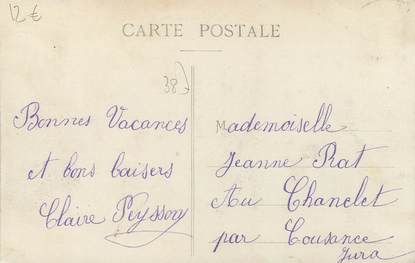 12€
CARTE POSTALE
38
Bonnes Vacances
et bons baisers
Claire Peysson
Mademoiselle
Jeanne Rat
Au Chanelet
par Cousance
Jura